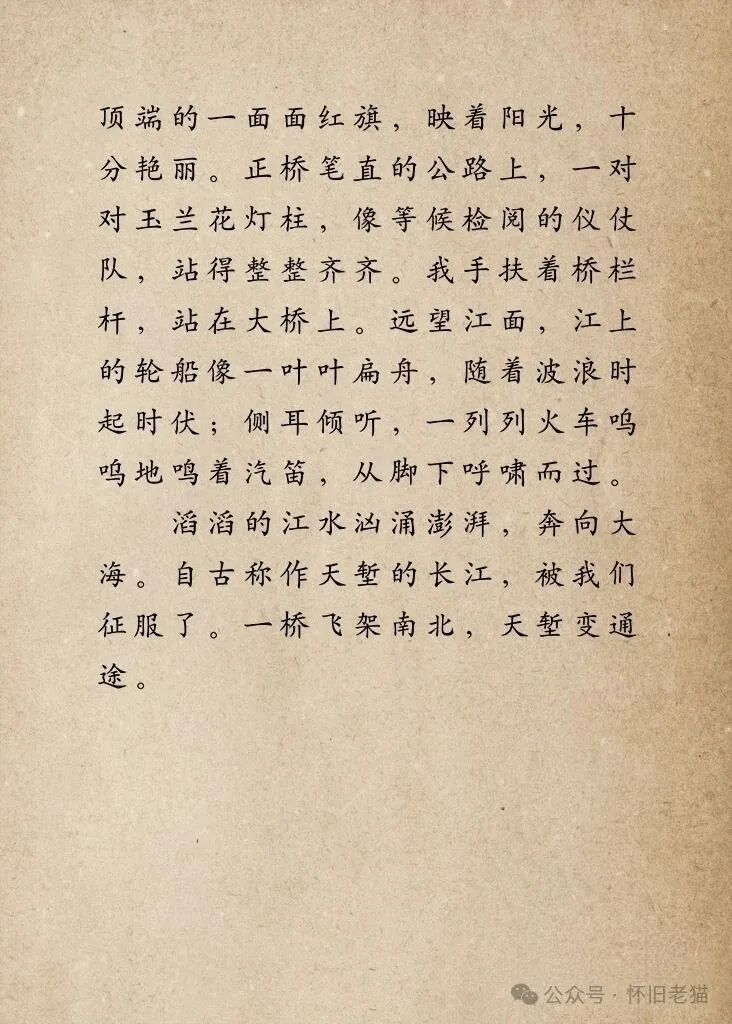 顶端的一面面红旗，映着阳光，十
分艳丽。正桥笔直的公路上，一对
对玉兰花灯柱，像等候检阅的仪仗
队，站得整整齐齐。我手扶着桥栏
杆，站在大桥上。远望江面，江上
的轮船像一叶叶扁舟，随着波浪时
起时伏；侧耳倾听，一列列火车呜
呜地鸣着汽笛，从脚下呼啸而过。
滔滔的江水汹涌澎湃，奔向大
海。自古称作天堑的长江，被我们
征服了。一桥飞架南北，天堑变通
途。
公众号·怀旧老猫